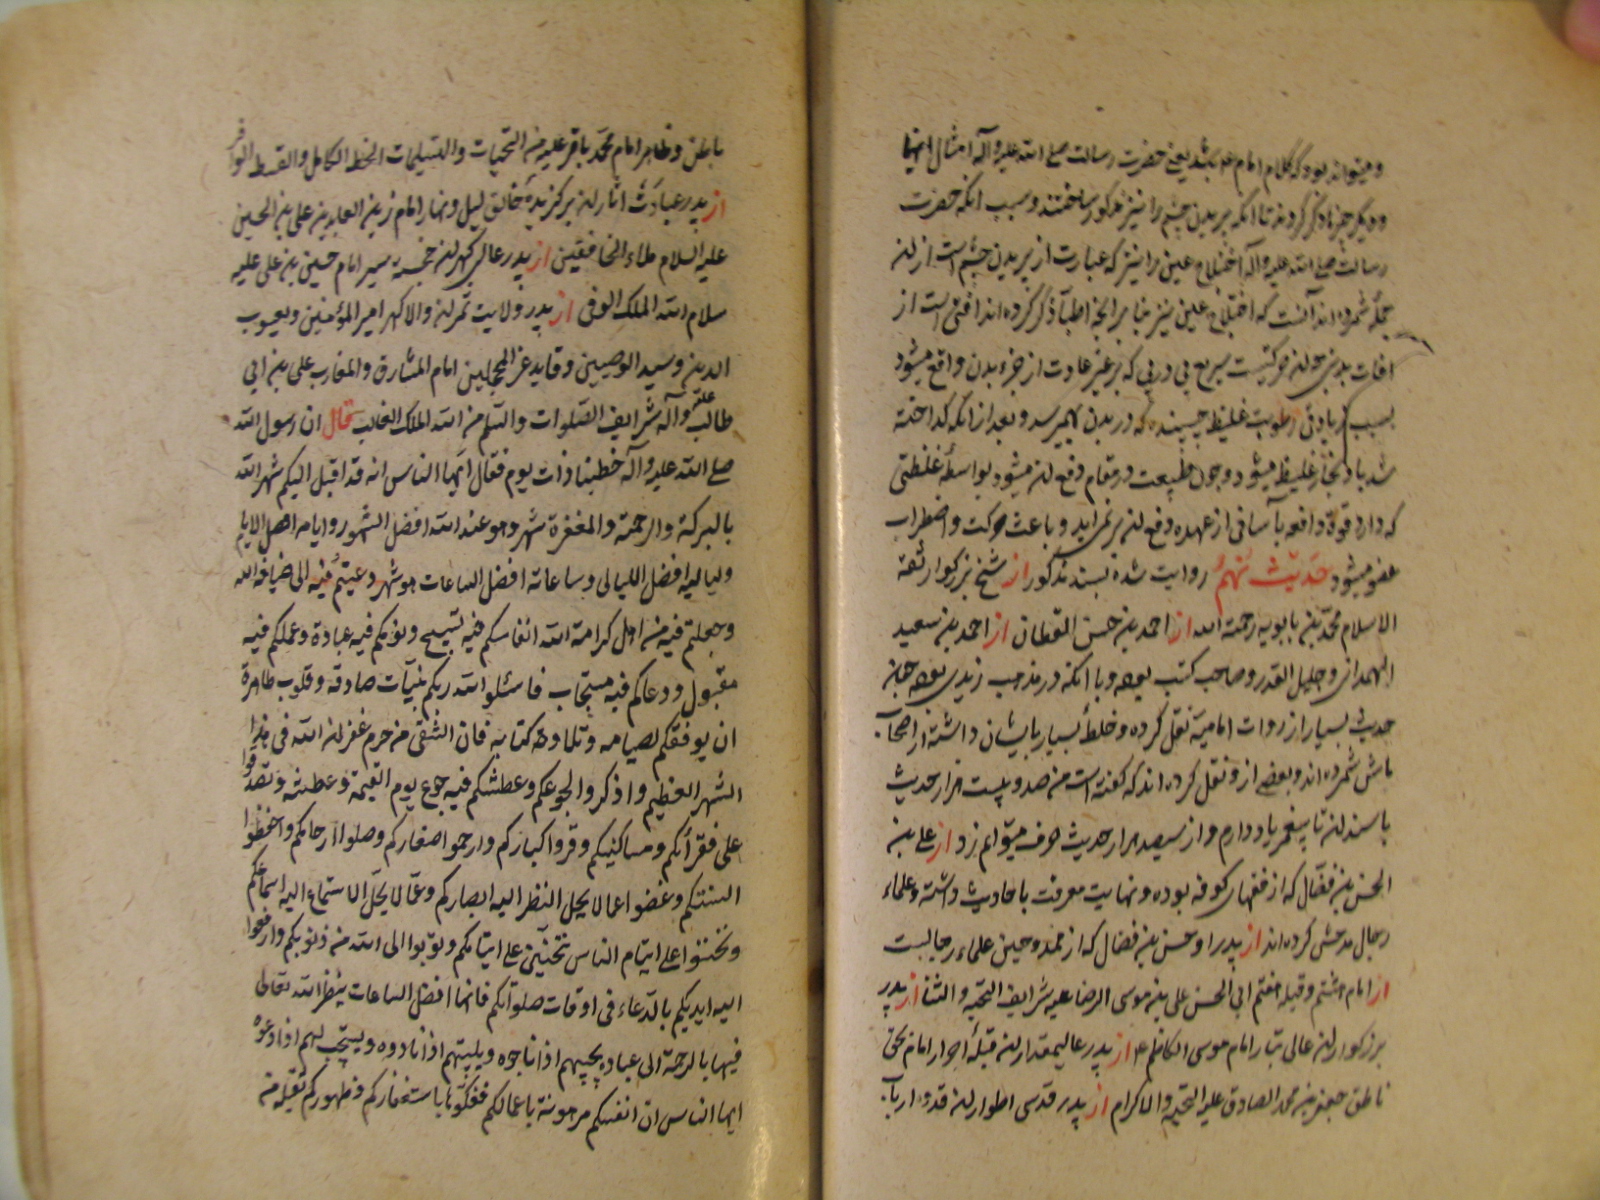 و میتواند بود که کلام امام ع باشد یعنی حضرت رسالت صلی الله علیه و آله امثال اینها
و دیگر چیزها ذکر کردند تا آنکه پریدن چشم را نیز مذکور ساختند و سبب آنکه حضرت
رسالت صلی الله علیه و آله اختلاج عین را نیز که عبارت از پریدن چشم است از ان
جمله شمرده اند آنست که اختلاج عین نیز بنا بر آنچه اطبا ذکر کرده اند آفتی است از
آفات بدن چه ان حرکتیست سریع پی در پی که بر غیر عادت از جزء بدن واقع میشود
بسبب زیادتی رطوبت غلیظ چسپنده که در بدن بهم میرسد و بعد از آنکه گداخته
شد باد بخار غلیظ میشود و چون طبیعت در مقام دفع ان میشود بواسطه غلظتی
که دارد قوة دافعه بآسانی از عهده دفع ان بر نمی آید و باعث حرکت و اضطراب
عضو میشود حدیث نهم روایت شده بسند مذکور از شیخ بزرکوار ثقة
الاسلام محمد بن بابویه رحمة الله از احمد بن حسن القطان از احمد بن سعید
الهمدانی و جلیل القدر و صاحب کتب بوده و با آنکه در مذهب زیدی بوده
حدیث بسیار از روات امامیه نقل کرده و خلطه بسیار بایشان داشته از اصحاب
باش شمرده اند و بعضی از و نقل کرده اند که گفته است من صد و بیست هزار حدیث
با سند ان تا پیغمبر یاد دارم و از سیصد هزار حدیث حرف میتوانم زد از علی بن
الحسن بن فضال که از فقهای کوفه بوده و نهایت معرفت باحادیث داشته و علماء
رجال مدحش کرده اند از پدر او حسن بن فضال که از ممدوحین علماء رجالست
از امام هشتم و قبله هفتم ابی الحسن علی بن موسی الرضا علیه شرایف التحیة و الثنا از پدر
بزرکوار ان عالی تبار امام موسی الکاظم ع از پدر عالیمقدار ان قبلهٔ احرار امام بحق
ناطق جعفر بن محمد الصادق علیه التحیة و الاکرام از پدر قدسی اطوار ان قدوه ارباب
باطن و ظاهر امام محمد باقر علیه من التحیات و التسلیمات الحظ الکامل و القسط الوافر
از پدر عبادت آثار ان برکزیدهٔ خالق لیل و نهار امام زین العابدین علی بن الحسین
علیه السلام ملاء الخافقین از پدر عالی گهر ان خجسته سیر امام حسین بن علی علیه
سلام الله الملک الوفی از پدر ولایت ثمر ان والا کهر امیر المؤمنین و یعسوب
الدین و سید الوصیین و قاید غر المحجلین امام المشارق و المغارب علی بن ابی
طالب علیه و آله شرایف الصلوات و السلام من الله الملک الغالب قال ان رسول الله
صلی الله علیه و آله خطبنا ذات یوم فقال ایها الناس انه قد اقبل الیکم شهر الله
بالبرکة و الرحمة و المغفرة شهر هو عند الله افضل الشهور و ایامه افضل الایام
و لیالیه افضل اللیالی و ساعاته افضل الساعات هو شهر دعیتم فیه الی ضیافة الله
و جعلتم فیه من اهل کرامة الله انفاسکم فیه تسبیح و نومکم فیه عبادة و عملکم فیه
مقبول و دعاکم فیه مستجاب فاسئلوا الله ربکم بنیات صادقة و قلوب طاهرة
ان یوفقکم لصیامه و تلاوة کتابه فان الشقی من حرم غفران الله فی هذا
الشهر العظیم و اذکروا بجوعکم و عطشکم فیه جوع یوم القیمة و عطشه و تصدقوا
علی فقرائکم و مساکنیکم و وقروا کبارکم و ارحموا صغارکم و صلوا ارحامکم و احفظوا
السنتکم و غضوا عما لا یحل النظر الیه ابصارکم و عما لا یحل الاستماع الیه اسماعکم
و تحننوا علی ایتام الناس یتحنن علی ایتامکم و توبوا الی الله من ذنوبکم و ارفعوا
الیه ایدیکم بالدعاء فی اوقات صلوٰتکم فانها افضل الساعات ینظر الله تعالی
فیها بالرحمة الی عباده یجیبهم اذا ناجوه و یلبیهم اذا نادوه و یستجیب لهم اذا دعوه
ایها الناس ان انفسکم مرهونة باعمالکم ففکوها باستغفارکم و ظهورکم ثقیلة من